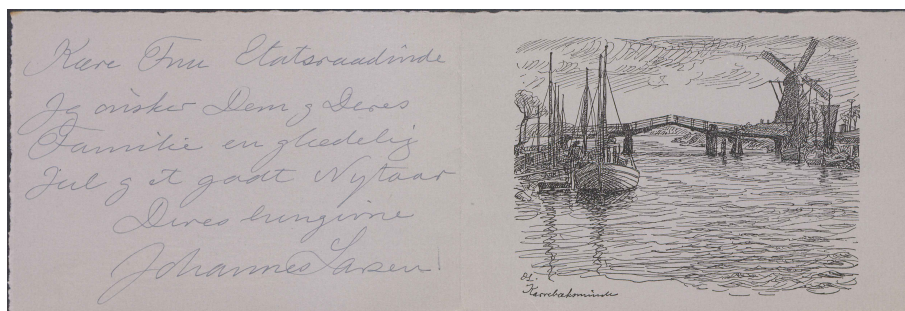 Kære Frue Etatsraadinde
Jeg ønsker Dem og Deres
Familie en glædelig
Jul og et godt Nytaar
Deres hengivne
Johannes Larsen
Karrebæksminde